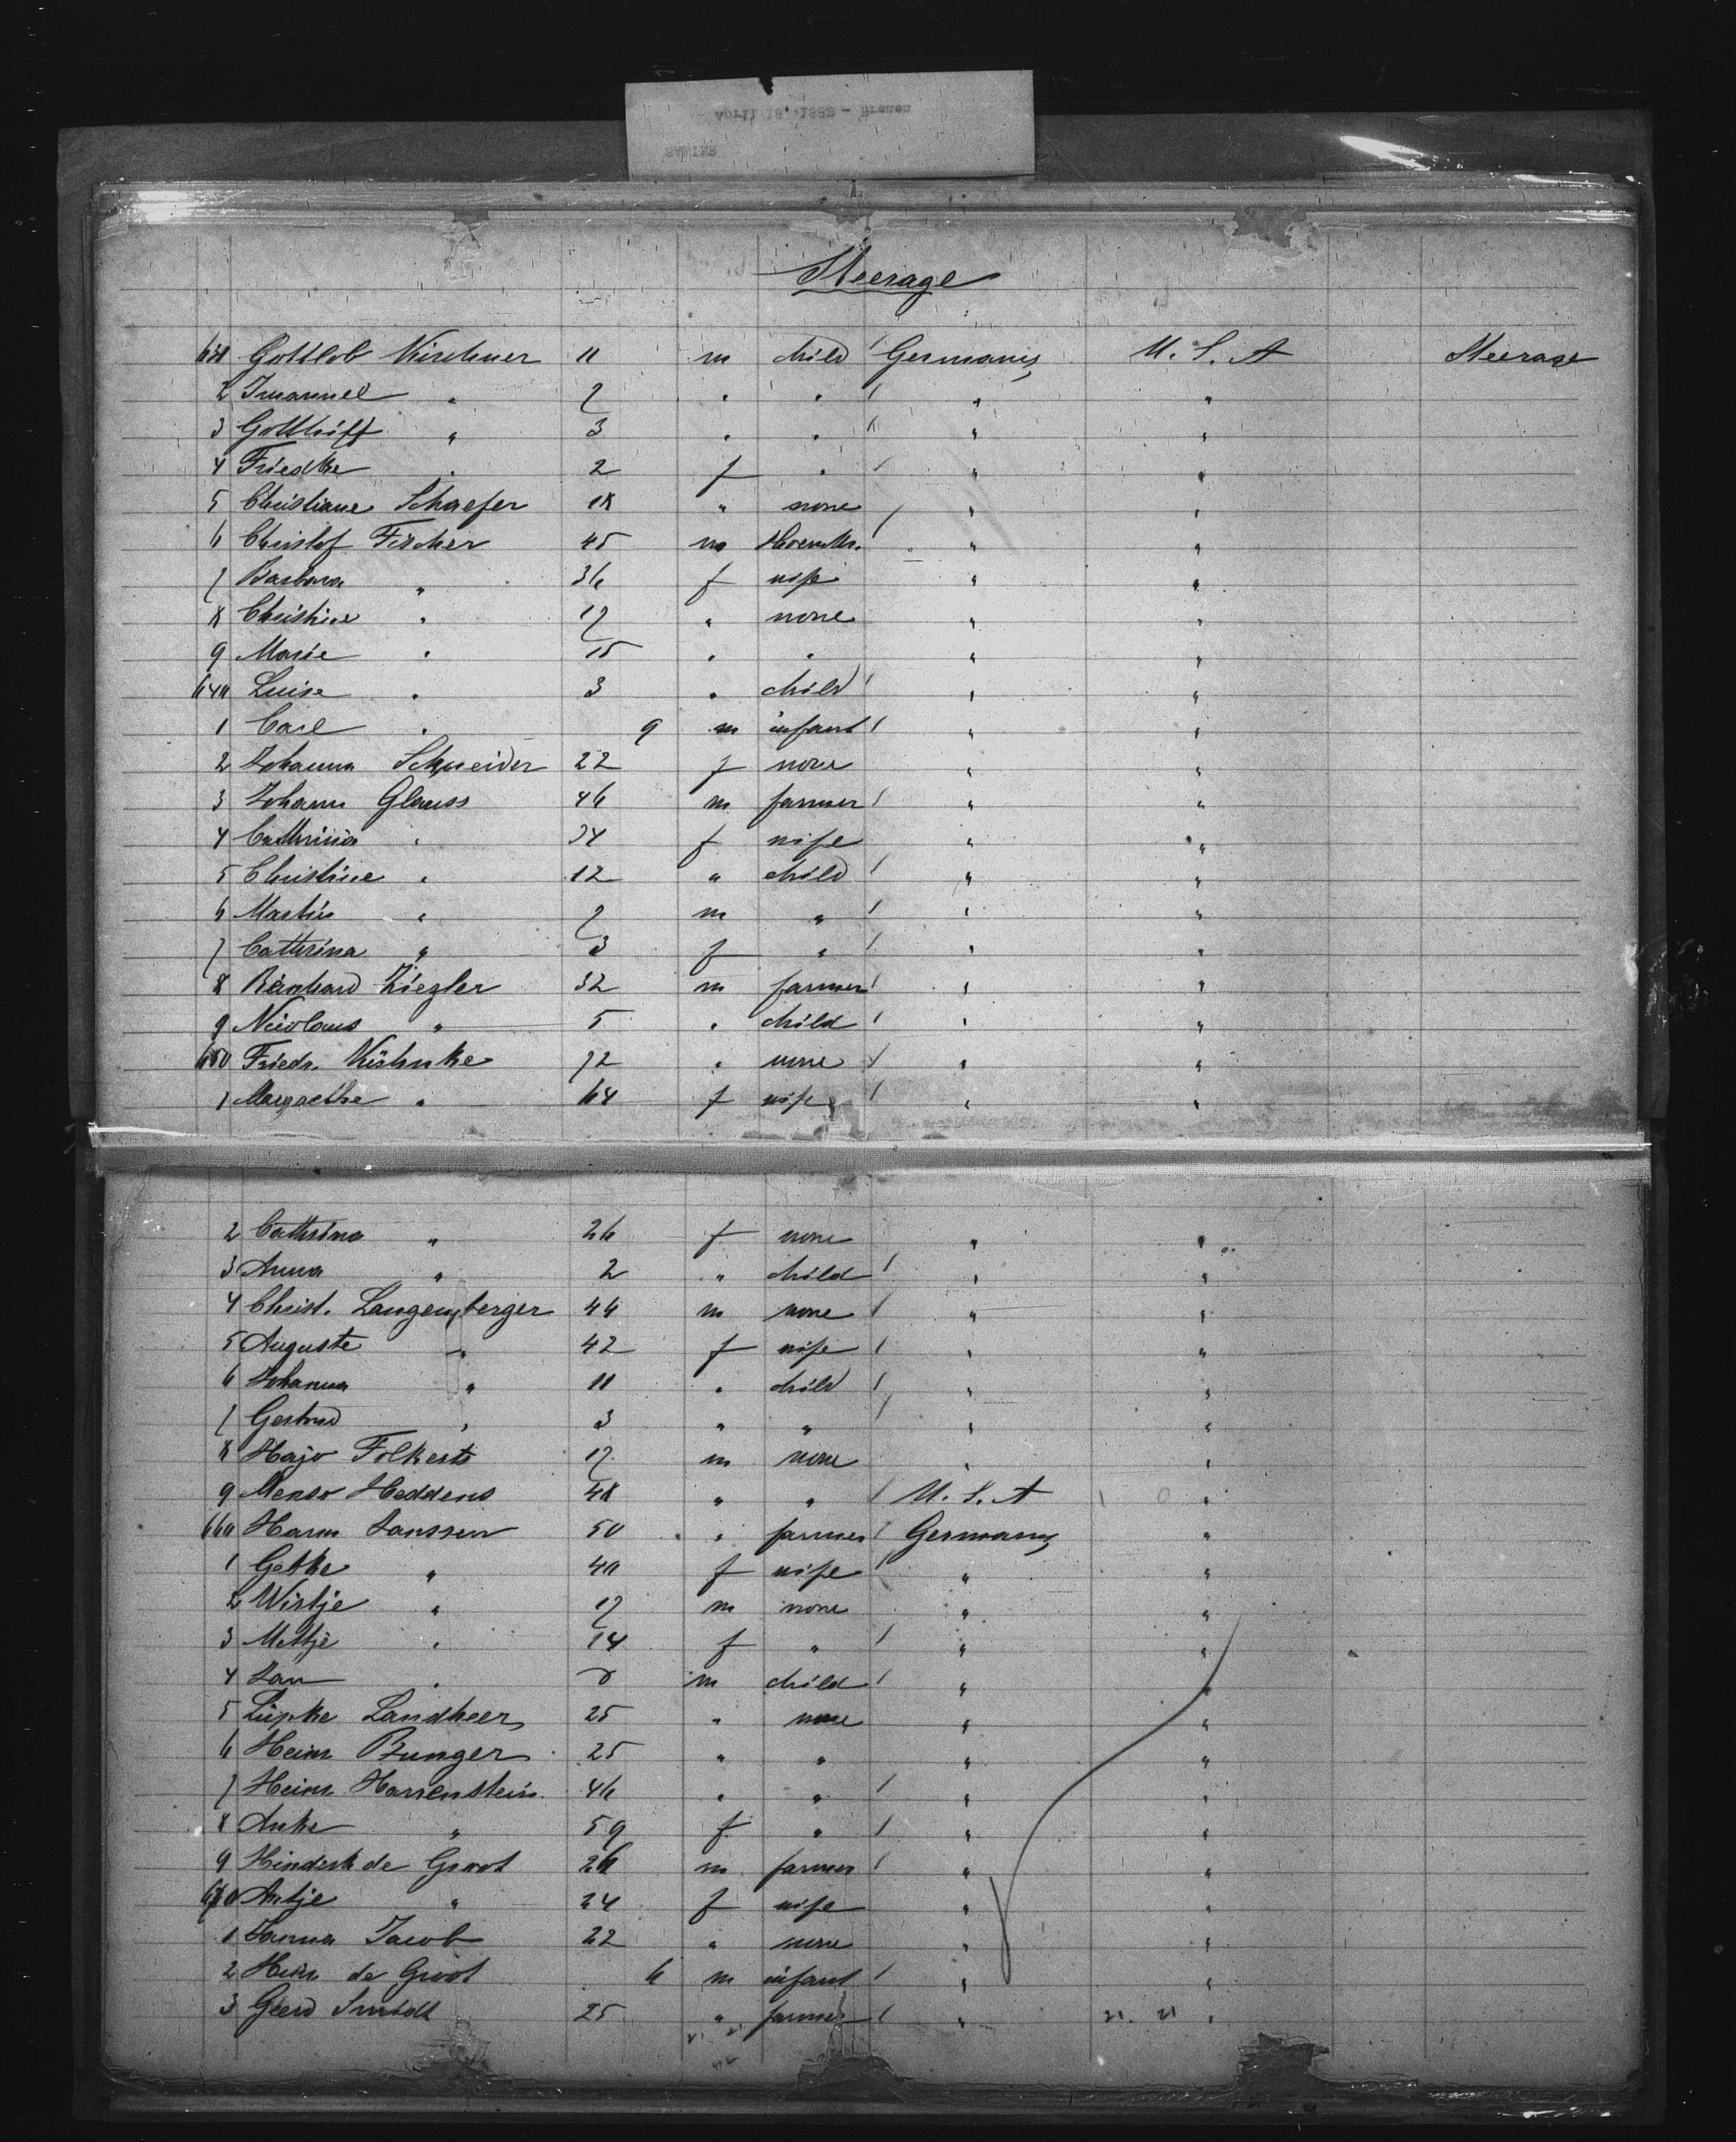 Steerage
631 Gottlob Kirchner 11 m child Germany U. S. A Steerage
2 Imanuel " 7 " " " "
3 Gottlieb " 3 " " " "
4 Friedke " 2 f " " "
5 Christiane Schaefer 18 " none " "
6 Christof Fischer 45 m " "
7 Barbara " 36 f wife " "
8 Christine " 17 " none " "
9 Marie " 15 " " " "
640 Luise " 3 " child " "
1 Carl " 9 m infant " "
2 Johanna Schneider 22 f none " "
3 Johann Glauss 46 m farmer " "
4 Cathrina " 34 f wife " "
5 Christine " 12 " child " "
6 Martin " 7 m " " "
7 Cathrina " 3 f " " "
8 Reinhard Ziegler 32 m farmer " "
9 Nicolaus " 5 " child " "
650 Friedr. Kühnke 72 " none " "
1 Margrethe " 64 f wife " "
2 Cathrina " 26 f none " "
3 Anna " 2 " child " "
4 Christ. Langenberger 44 m none " "
5 Auguste " 42 f wife " "
6 Johanna " 11 " child " "
7 Gertrud " 3 " " " "
8 Hajo Folkerts 17 m none " "
9 Menso Heddens 48 " " U. S. A "
660 Harm Janssen 50 " farmer Germany "
1 Getke " 40 f wife " "
2 Wirtje " 17 m none " "
3 Mettje " 14 f " " "
4 Jan " m child " "
5 Lüpke Landheer 25 " none " "
6 Heinr. Bunger 25 " " " "
7 Heinr. Harrenstein 46 " " " "
8 Anke " 59 f " " "
9 Hinderk de Groot 26 m farmer " "
670 Antje " 24 f wife " "
1 Janna Jacob 22 " none " "
2 Heinr. de Groot 6 m infant " "
3 Geerd Smidt 25 " farmer " "